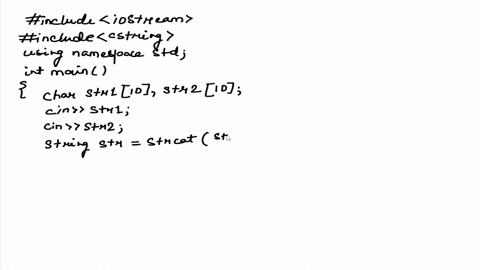 #include <iostream>
#include <cstring>
using namespace std;
int main()
{ char str1[10], str2[10];
cin>> str1;
cin>> str2;
string str = strcat( st